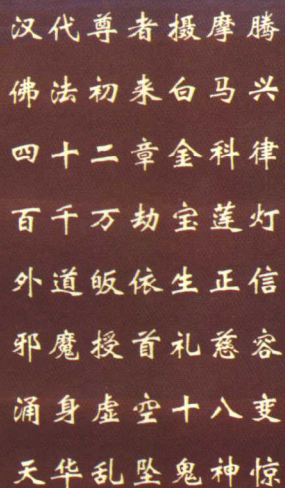 汉代尊者摄摩腾
佛法初来白马兴
四十二章金科律
百千万劫宝莲灯
外道皈依生正信
邪魔授首礼慈容
涌身虚空十八变
天华乱坠鬼神惊